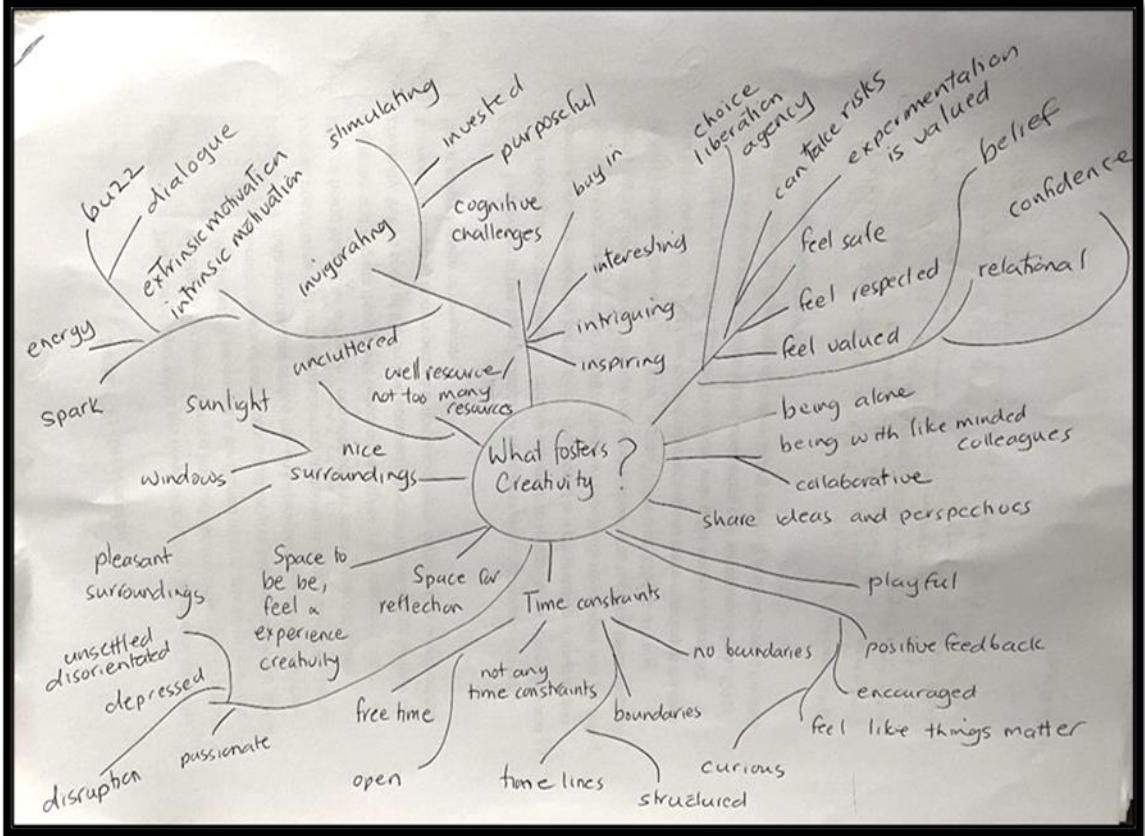 What fosters
Creativity ?
stimulating
invested
purposeful
invigorating
buzz
dialogue
extrinsic motivation
intrinsic motivation
energy
spark
cognitive
challenges
buy in
interesting
intriguing
inspiring
choice
liberation
agency
can take risks
experimentation
is valued
feel safe
feel respected
feel valued
belief
confidence
relational
being alone
being with like minded
colleagues
collaborative
share ideas and perspectives
playful
positive feedback
encouraged
feel like things matter
curious
Time constraints
no boundaries
boundaries
structured
time lines
not any
time constraints
open
free time
Space for
reflection
Space to
be be,
feel
experience
creativity
unsettled
disorientated
depressed
disruption
passionate
nice
surroundings
sunlight
windows
pleasant
surroundings
uncluttered
well resource/
not too many
resources